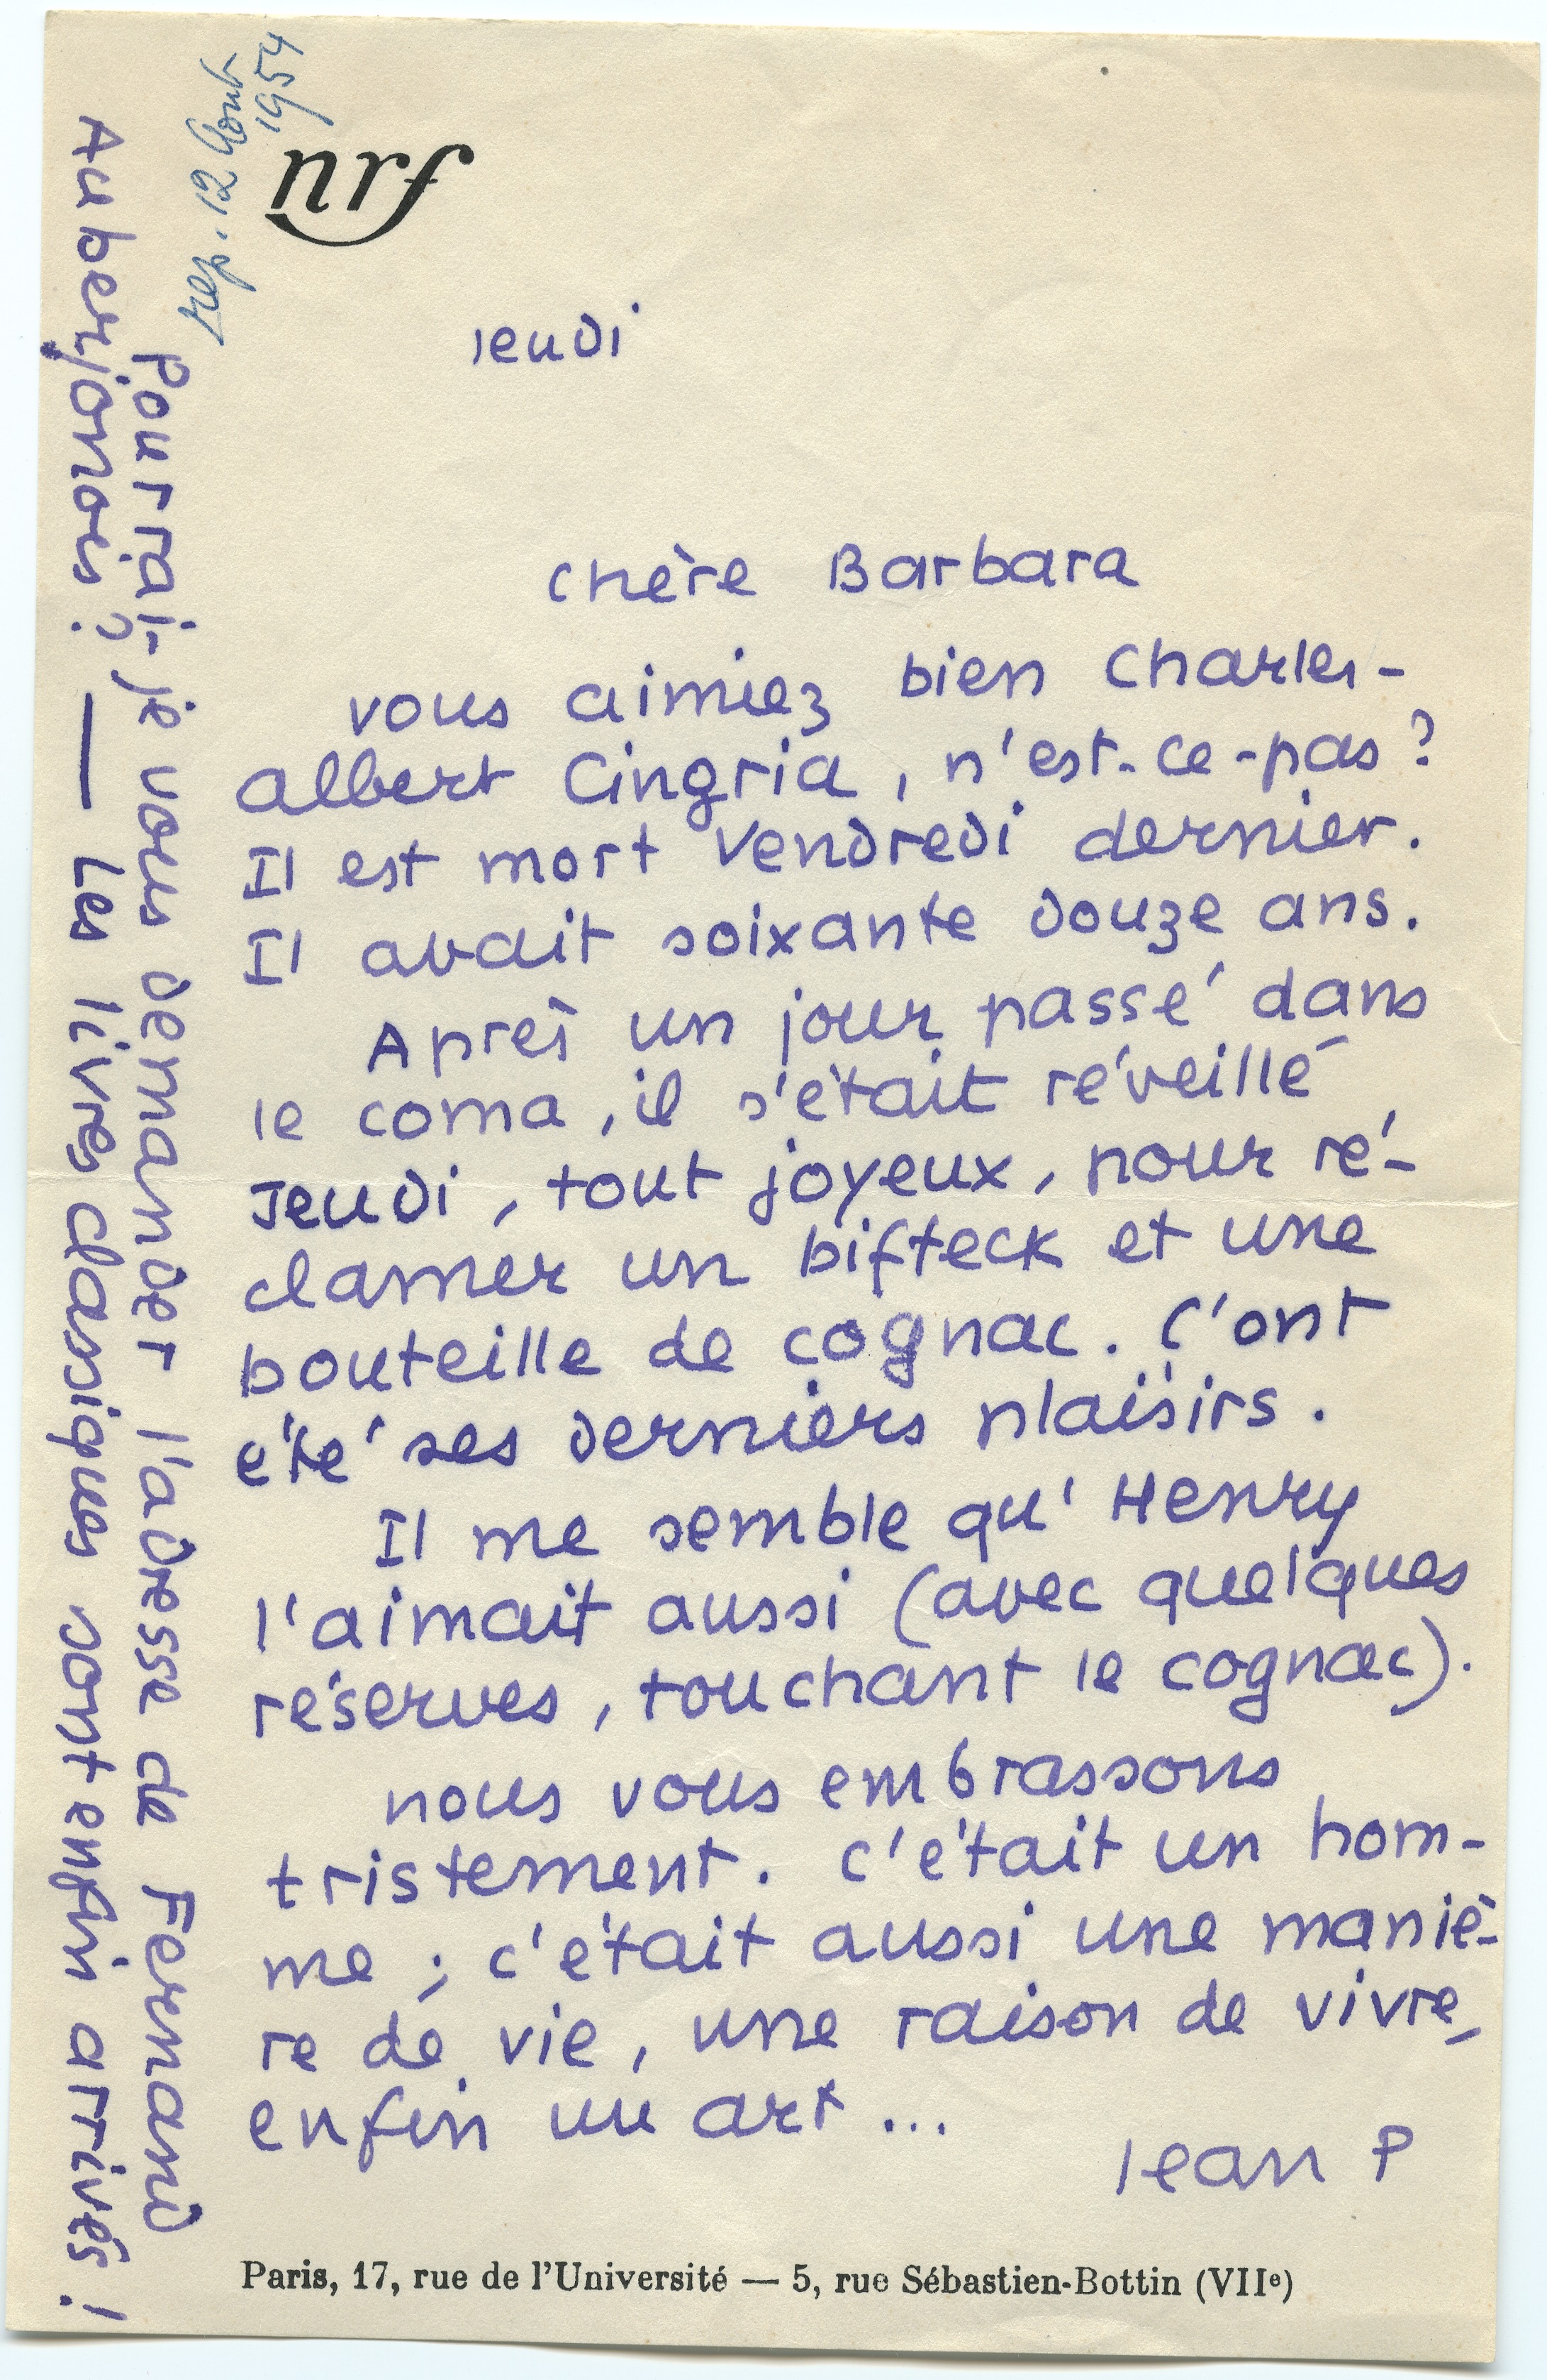 rep. 12 Aout
1954
nrf
Jeudi
Chère Barbara
vous aimiez bien Charles-
Albert Cingria, n'est-ce-pas ?
Il est mort vendredi dernier.
Il avait soixante douze ans.
Après un jour passé dans
le coma, il s'était réveillé
Jeudi, tout joyeux, pour ré-
clamer un bifteck et une
bouteille de cognac. C'ont
été ses derniers plaisirs.
Il me semble qu'Henry
l'aimait aussi (avec quelques
réserves, touchant le cognac).
nous vous embrassons
tristement. C'était un hom-
me ; c'était aussi une maniè-
re de vie, une raison de vivre,
enfin un art ...
Jean P
Pourrai-je vous demander l'adresse de Fernand
Auberjonois ? — Les livres classiques sont enfin arrivés !
Paris, 17, rue de l'Université — 5, rue Sébastien-Bottin (VIIe)